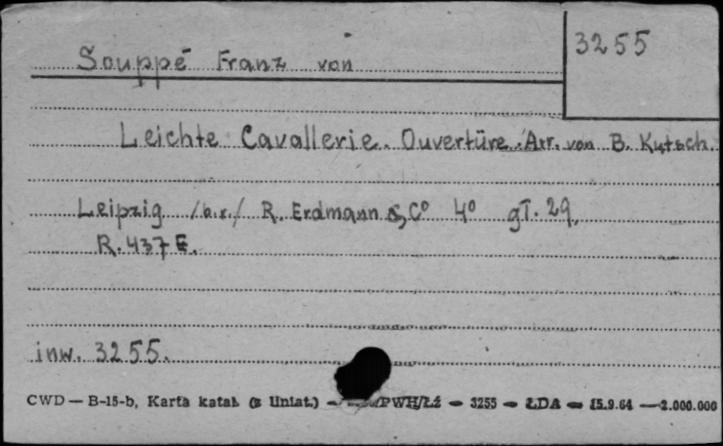 3255
Souppé Franz von
Leichte Cavallerie. Ouvertüre. Arr. von B. Kutsch.
Leipzig /b.r./ R. Erdmann & Co 4o gł. 29.
R. 437 E.
inw. 3255.
CWD — B-15-b, Karta katal. (z Uniat.) — PWH/Łż — 3255 — ŁDA — 15.9.64 — 2.000.000